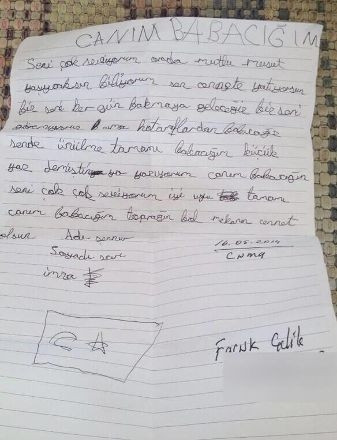 CANIM BABACIĞIM
Seni çok seviyorum orada mutlu mesut
yaşıyorsun biliyorum sen cennette yatıyorsun
biz seni her gün bakmaya geleceğiz biz seni
hotoraflardan bakacağız
sende üzülme tamam babacığım küçük
yaz demiştin ya yazıyorum canım babacığım
seni çok çok seviyorum iyi uyu tamam
canım babacığım toprağın bol mekanın cennet
olsun Adı-
Soyadı
imza
16-05-2014
CUMA
Faruk Çelik